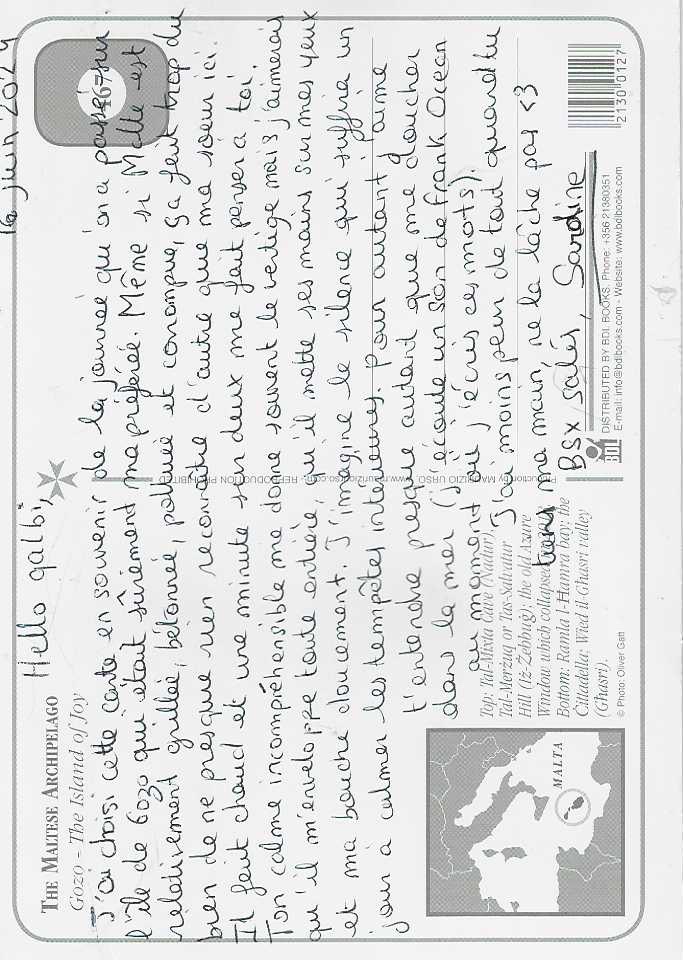 16 juin 2024
Hello galbi,
THE MALTESE ARCHIPELAGO
Gozo - The Island of Joy
46
J'ai choisi cette carte en souvenir de la journée qu'on a passée sur
l'île de Gozo qui était sûrement ma préférée. Même si Malte est
relativement grillée, bétonnée, polluée et corrompue, ça fait trop du
bien de ne presque rien reconnaître d'autre que ma soeur ici.
Il fait chaud et une minute sur deux me fait penser à toi.
Ton calme incompréhensible me done souvent le vertige mais j'aimerais
qu'il m'enveloppe toute entière, qu'il mette ses mains sur mes yeux
et ma bouche doucement. J'imagine le silence qui suffira un
jour à calmer les tempêtes intérieures. Pour autant j'aime
t'entendre presque autant que me doucher
dans la mer (j'écoute un son de Frank Ocean
au moment où j'écris ces mots).
J'ai moins peur de tout quand tu
tiens ma main, ne la lâche pas <3
BSX salés, Sardine
MALTA
Top: Tal-Mixta Cave (Nadur);
Tal-Merżuq or Tas-Salvatur
Hill (Iż-Żebbuġ); the old Azure
Window which collapsed
Bottom: Ramla l-Hamra bay; the
Cittadella; Wied il Għasri valley
(Għasri).
© Photo: Oliver Gatt
Production by MAURIZIO URSO - www.maurizioursо.com - REPRODUCTION
BDI
DISTRIBUTED BY BDL BOOKS. Phone: +356 21380351
E-mail: info@bdlbooks.com - Website: www.bdlbooks.com
2130 0127